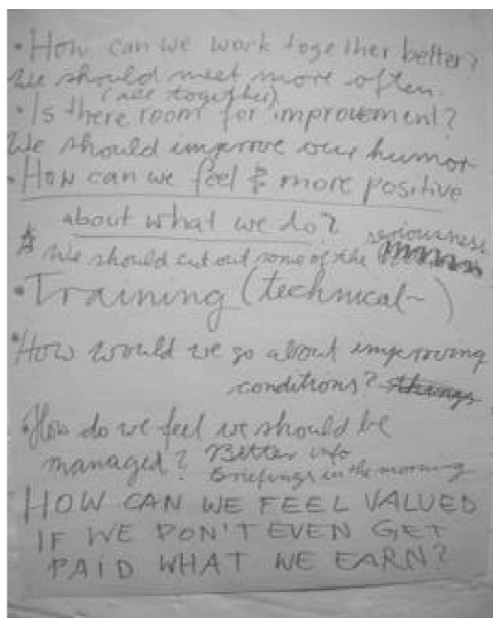 • How can we work together better?
We should meet more often.
(all together)
• Is there room for improvement?
We should improve our humor
• How can we feel & more positive
about what we do?
seriousness
We should cut out some of the
• Training (technical~)
• How would we go about improving
conditions? things
• How do we feel we should be
managed? Better info
Briefings in the morning
HOW CAN WE FEEL VALUED
IF WE DON'T EVEN GET
PAID WHAT WE EARN?